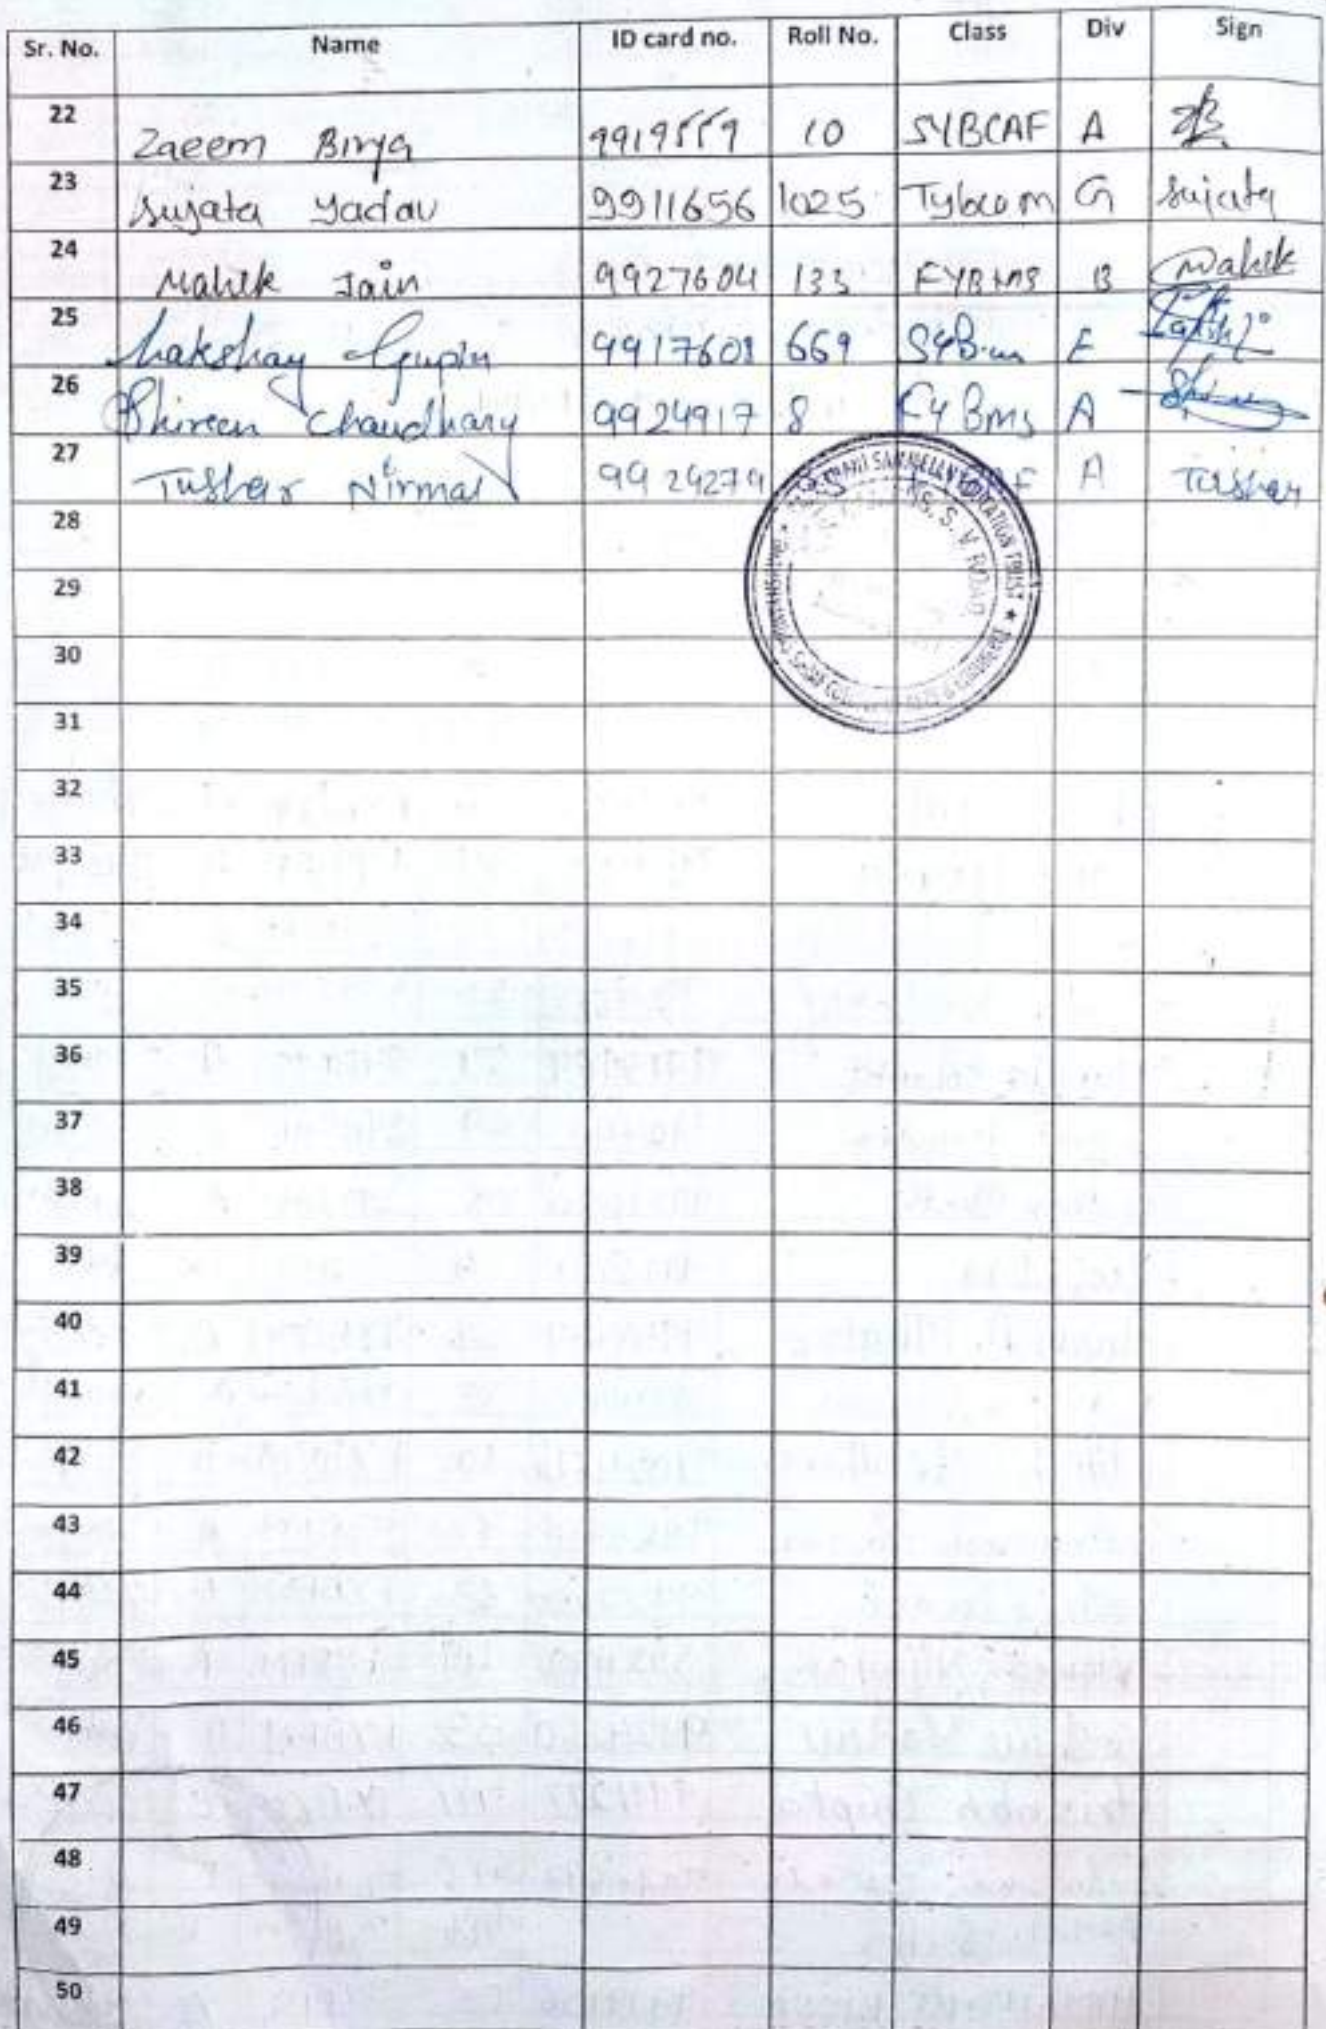 Sr. No. Name ID card no. Roll No. Class Div Sign
22 Zaeem Birya 9919559 10 SYBCAF A
23 Sujata Yadav 9911656 1025 Tybcom G Sujata
24 Mahek Jain 9927604 133 FYBMS B Mahek
25 Lakshay Gupta 9917601 669 SYB.com E
26 Shireen Chaudhary 9924917 8 FYBMS A
27 Tushar Nirmal 9924279 A Tushar
EDUCATION TRUST
S. V. ROAD
28
29
30
31
32
33
34
35
36
37
38
39
40
41
42
43
44
45
46
47
48
49
50